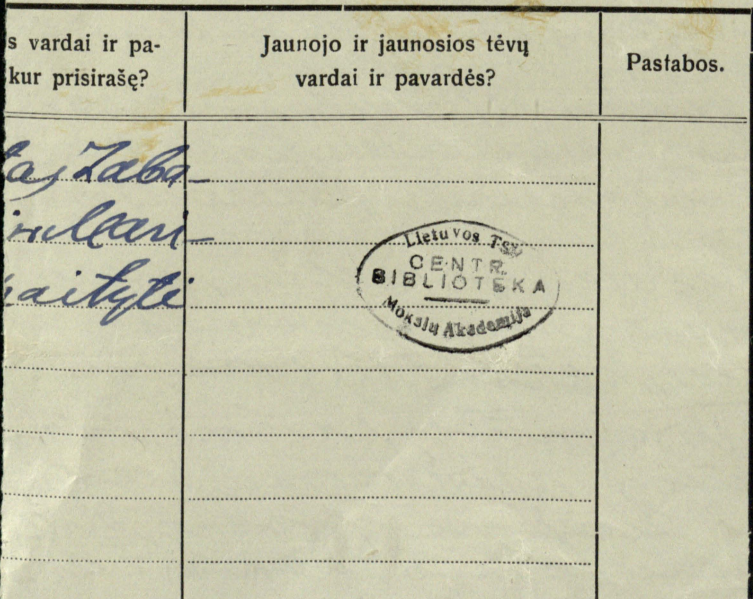 s vardai ir pa-
kur prisirašę?
Jaunojo ir jaunosios tėvų
vardai ir pavardės?
Pastabos.
Zaba-
ir Mari-
aitytė
Lietuvos TSR
CENTR.
BIBLIOTEKA
Mokslų Akademija